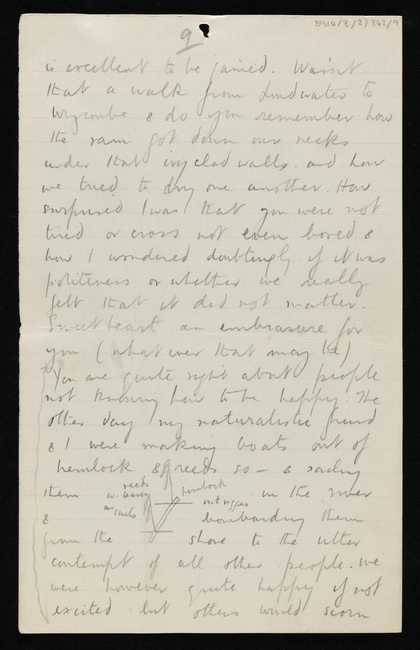 9
is excellent to be joined. Wasn't
that a walk from Loudwater to
Wycombe & do you remember how
the rain got down our necks
under that ivyclad walls. and how
we tried to dry one another. How
surprised I was that you were not
tired or cross not even bored &
how I wondered doubtingly if it was
politeness or whether we really
felt that it did not matter.
Sweetheart an embrasure for
you (whatever that may be)
You are quite right about people
not knowing how to be happy. The
other day my naturalistic friend
& I were making boats out of
hemlock & reeds so — & sailing
them reeds hemlock in the river
as sails outrigger
& bombarding them
from the shore to the utter
contempt of all other people. We
were however quite happy if not
excited but others would scorn